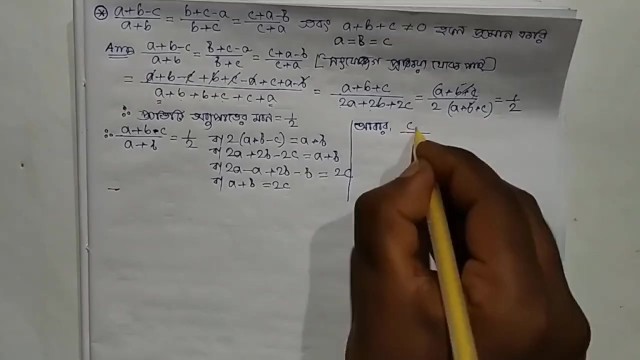 * a+b-c/a+b = b+c-a/b+c = c+a-b/c+a এবং a+b+c ≠ 0 হলে প্রমাণ করি
a=B=c
Ans a+b-c/a+b = b+c-a/b+c = c+a-b/c+a [সংযোজন প্রক্রিয়া থেকে পাই]
= a+b-c+b+c-a+c+a-b/a+b+b+c+c+a = a+b+c/2a+2b+2c = (a+b+c)/2(a+b+c) = 1/2
∴ প্রতিটি অনুপাতের মান = 1/2
∴ a+b-c/a+b = 1/2 বা 2(a+b-c) = a+b
বা 2a+2b-2c = a+b
বা 2a-a+2b-b = 2c
বা a+b = 2c
আবার, c